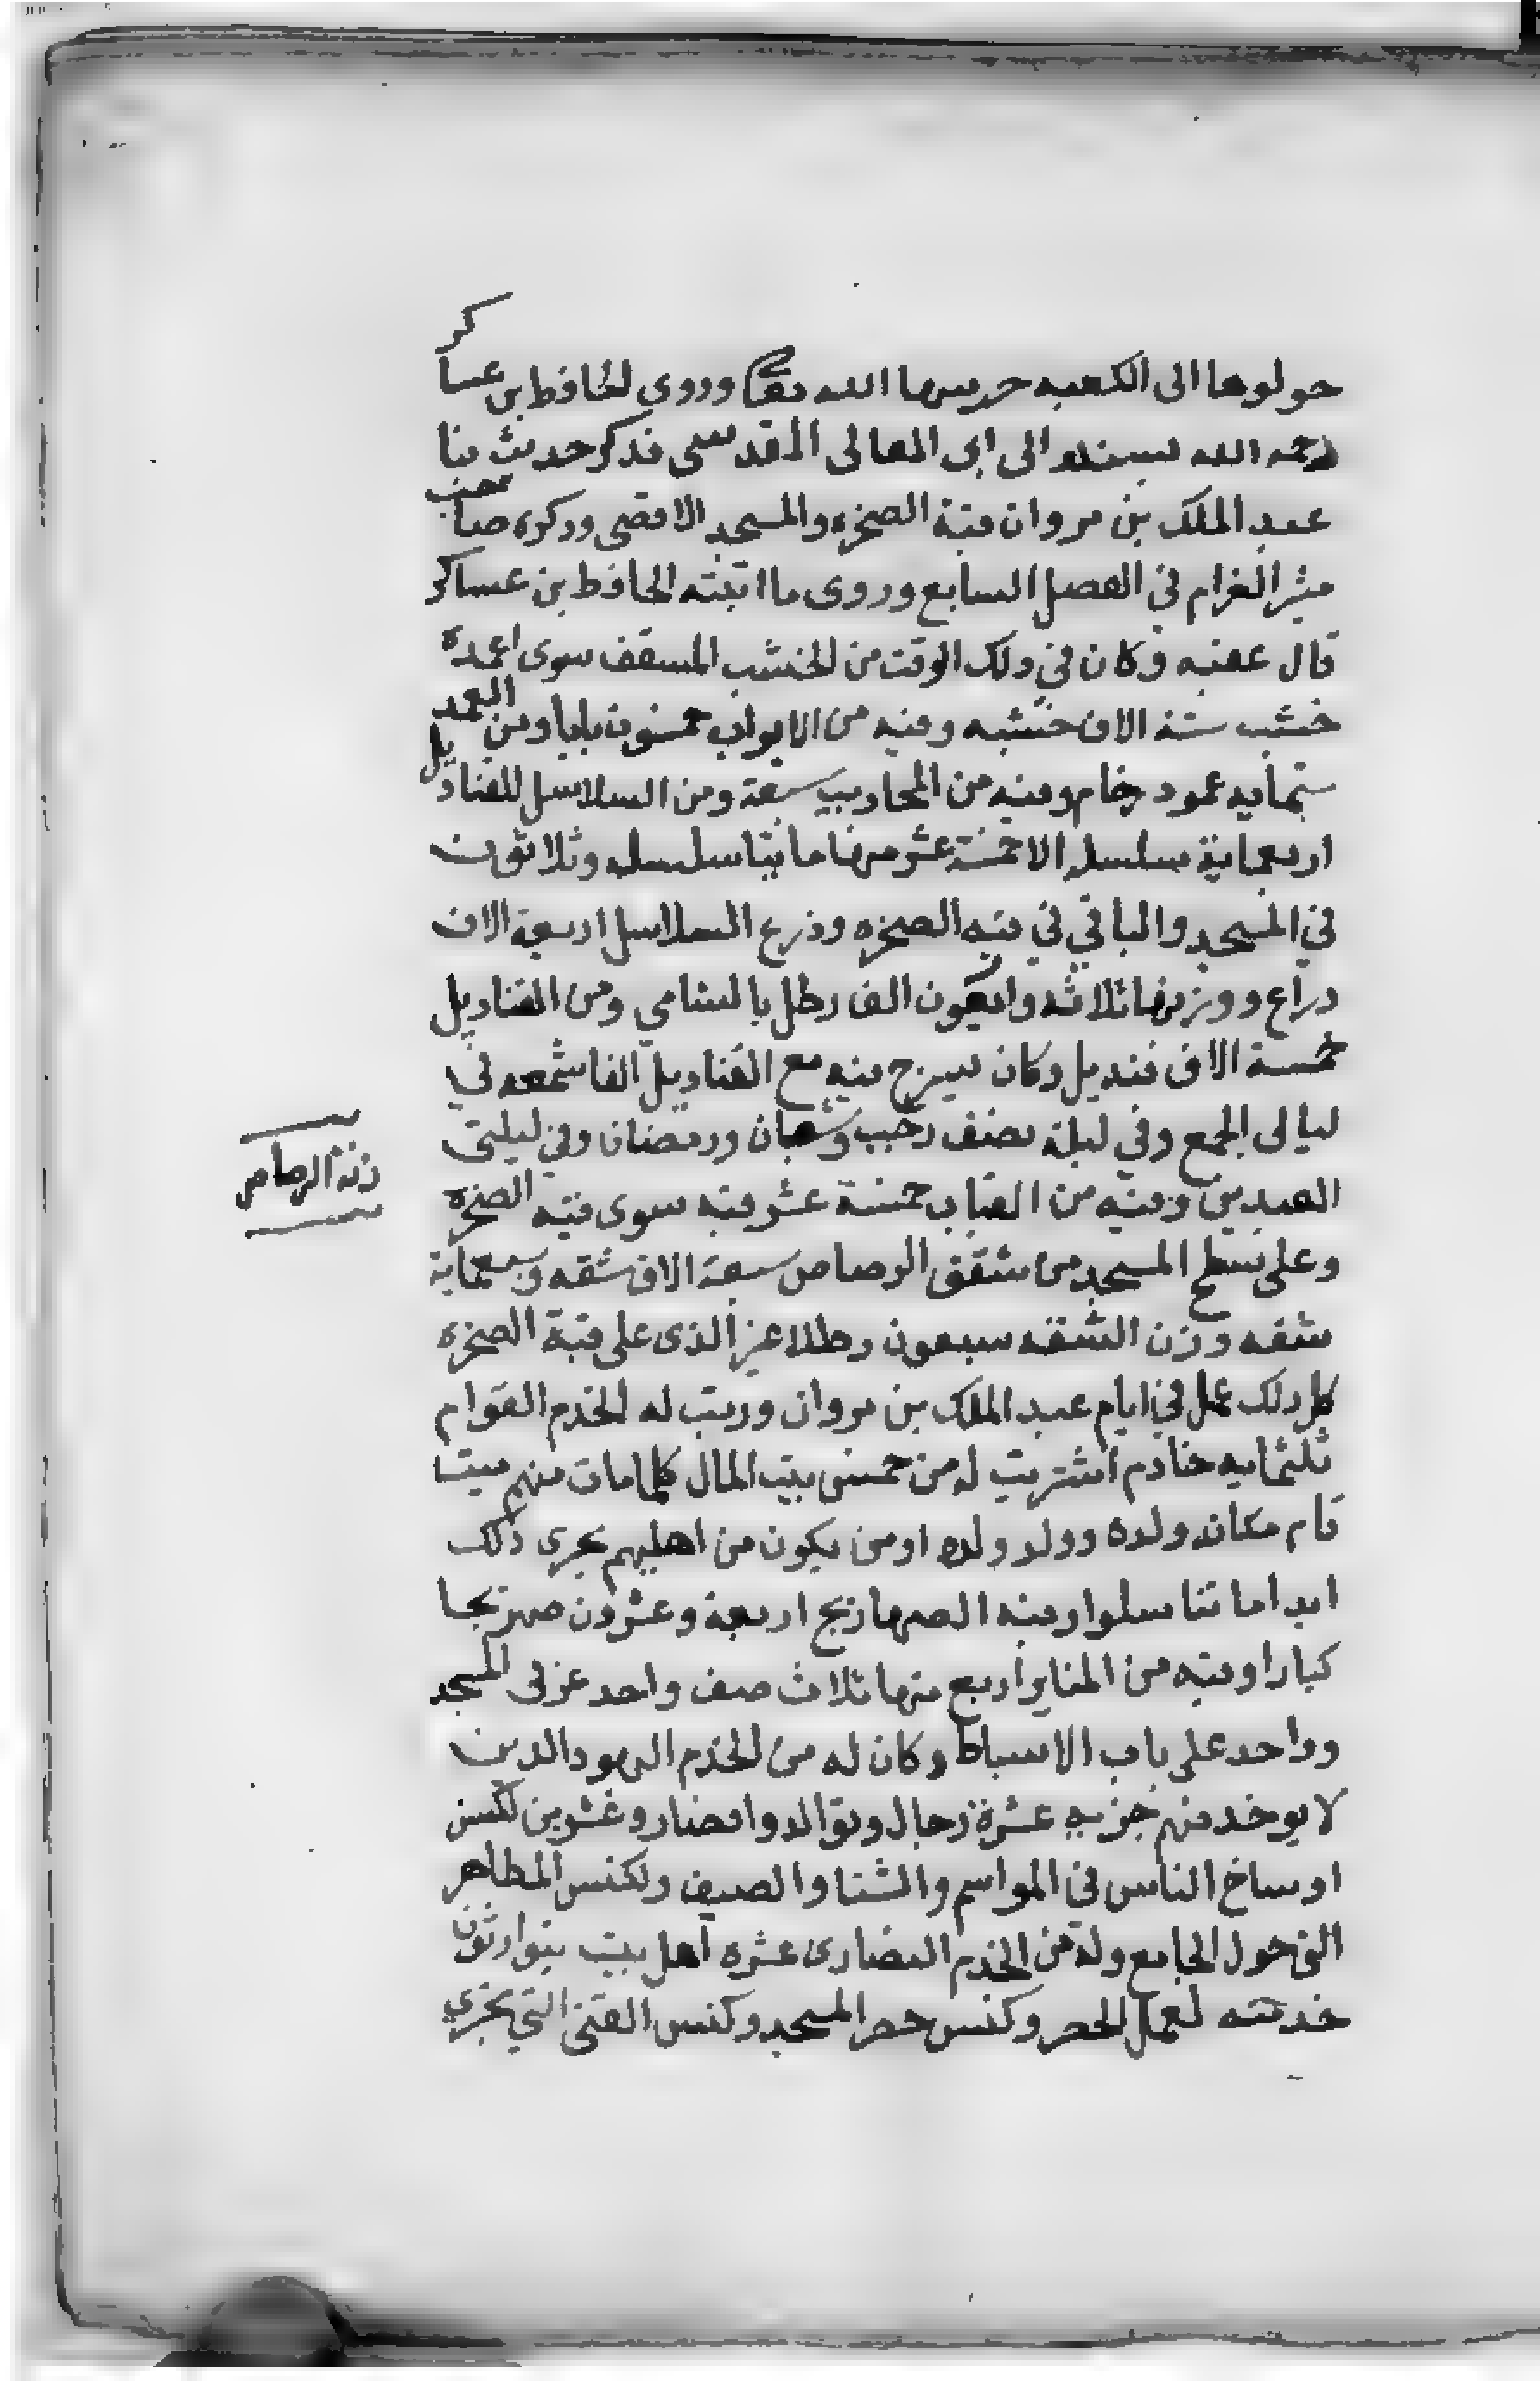 حولوها الى الكعبه حرسها الله تعالى وروى الحافظ بن عساكر
رحمه الله بسنده الى ابى المعالى المقدسى فذكر حديث بنا
عبد الملك بن مروان قبة الصخره والمسجد الاقصى وذكره صاحب
مثير الغرام في الفصل السابع وروى ما اثبته الحافظ بن عساكر
قال عقبه وكان في ذلك الوقت من الخشب المسقف سوى اعمده
خشب ستة الاف خشبه وفيه من الابواب خمسون بابا ومن العمد
ستمايه عمود رخام وفيه من المحاريب سبعة ومن السلاسل للقناديل
اربعماية سلسله الا خمسة عشر منها مايتا سلسله وثلاثون
في المسجد والباقي في قبه الصخره وذرع السلاسل اربعة الاف
ذراع ووزنها ثلاثه واربعون الف رطل بالشامي ومن القناديل
خمسة الاف قنديل وكان يسرج فيه مع القناديل الفا شمعه في
ليالى الجمع وفي ليلة نصف رجب وشعبان ورمضان وفي ليلتى
العيدين وفيه من القباب خمسة عشر قبه سوى قبه الصخره
وعلى سطح المسجد من شقق الرصاص سبعة الاف شقه وسبعماية
شقه وزن الشقه سبعون رطلا غير الذى على قبة الصخره
كل ذلك عمل في ايام عبد الملك بن مروان ورتب له الخدم القوام
ثلثمايه خادم اشتريت له من خمس بيت المال كلما مات منهم ميت
قام مكانه ولده وولد ولده او من يكون من اهليهم يجرى ذلك
ابدا ما تناسلوا وفيه الصهاريج اربعة وعشرون صهريجا
كبارا وفيه من المناير اربع منها ثلاث صف واحد غربى المسجد
وواحد على باب الاسباط وكان له من الخدم اليهود الذين
لا يوخذ منهم جزيه عشرة رجال وتوالدوا فصاروا عشرين لكنس
اوساخ الناس في المواسم والشتا والصيف ولكنس المطاهر
التى حول الجامع وله من الخدم النصارى عشره اهل بيت يتوارثون
خدمته لعمل الحصر وكنس حصر المسجد وكنس القنى التي يجري
زنة الرصاص